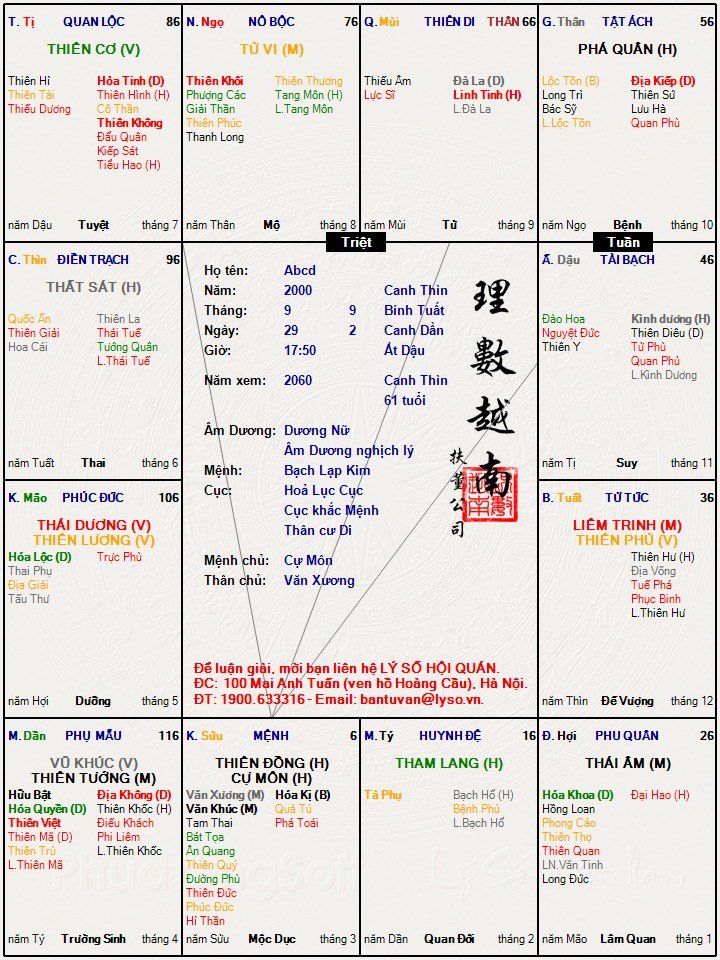 T. Tị QUAN LỘC 86
THIÊN CƠ (V)
Thiên Hỉ
Thiên Tài
Thiếu Dương
Hỏa Tinh (D)
Thiên Hình (H)
Cô Thần
Thiên Không
Đẩu Quân
Kiếp Sát
Tiểu Hao (H)
năm Dậu Tuyệt tháng 7
N. Ngọ NÔ BỘC 76
TỬ VI (M)
Thiên Khôi
Phượng Các
Giải Thần
Thiên Phúc
Thanh Long
Thiên Thương
Tang Môn (H)
L.Tang Môn
năm Thân Mộ tháng 8
Q. Mùi THIÊN DI THÂN 66
Thiếu Âm
Lực Sĩ
Đà La (D)
Linh Tinh (H)
L.Đà La
năm Mùi Tử tháng 9
G. Thân TẬT ÁCH 56
PHÁ QUÂN (H)
Lộc Tồn (B)
Long Trì
Bác Sỹ
L.Lộc Tồn
Địa Kiếp (D)
Thiên Sứ
Lưu Hà
Quan Phù
năm Ngọ Bệnh tháng 10
Triệt
Tuần
C. Thìn ĐIỀN TRẠCH 96
THẤT SÁT (H)
Quốc Ấn
Thiên Giải
Hoa Cái
Thiên La
Thái Tuế
Tướng Quân
L.Thái Tuế
năm Tuất Thai tháng 6
Họ tên: Abcd
Năm: 2000 Canh Thìn
Tháng: 9 9 Bính Tuất
Ngày: 29 2 Canh Dần
Giờ: 17:50 Ất Dậu
Năm xem: 2060 Canh Thìn
61 tuổi
Âm Dương: Dương Nữ
Âm Dương nghịch lý
Mệnh: Bạch Lạp Kim
Cục: Hoả Lục Cục
Cục khắc Mệnh
Thân cư Di
Mệnh chủ: Cự Môn
Thân chủ: Văn Xương
理數越南
扶董公司
Để luận giải, mời bạn liên hệ LÝ SỐ HỘI QUÁN.
ĐC: 100 Mai Anh Tuấn (ven hồ Hoàng Cầu), Hà Nội.
ĐT: 1900.633316 - Email: bantuvan@lyso.vn.
Ấ. Dậu TÀI BẠCH 46
Đào Hoa
Nguyệt Đức
Thiên Y
Kình dương (H)
Thiên Diêu (D)
Tử Phù
Quan Phủ
L.Kình Dương
năm Tị Suy tháng 11
K. Mão PHÚC ĐỨC 106
THÁI DƯƠNG (V)
THIÊN LƯƠNG (V)
Hóa Lộc (D)
Thai Phụ
Địa Giải
Tấu Thư
Trực Phù
năm Hợi Dưỡng tháng 5
B. Tuất TỬ TỨC 36
LIÊM TRINH (M)
THIÊN PHỦ (V)
Thiên Hư (H)
Địa Võng
Tuế Phá
Phục Binh
L.Thiên Hư
năm Thìn Đế Vượng tháng 12
M. Dần PHỤ MẪU 116
VŨ KHÚC (V)
THIÊN TƯỚNG (M)
Hữu Bật
Hóa Quyền (D)
Thiên Việt
Thiên Mã (D)
Thiên Trù
L.Thiên Mã
Địa Không (D)
Thiên Khốc (H)
Điếu Khách
Phi Liêm
L.Thiên Khốc
năm Tý Trường Sinh tháng 4
K. Sửu MỆNH 6
THIÊN ĐỒNG (H)
CỰ MÔN (H)
Văn Xương (M)
Văn Khúc (M)
Tam Thai
Bát Tọa
Ân Quang
Thiên Quý
Đường Phù
Thiên Đức
Phúc Đức
Hỉ Thần
Hóa Kị (B)
Quả Tú
Phá Toái
năm Sửu Mộc Dục tháng 3
M. Tý HUYNH ĐỆ 16
THAM LANG (H)
Tả Phụ
Bạch Hổ (H)
Bệnh Phù
L.Bạch Hổ
năm Dần Quan Đới tháng 2
Đ. Hợi PHU QUÂN 26
THÁI ÂM (M)
Hóa Khoa (D)
Hồng Loan
Phong Cáo
Thiên Thọ
Thiên Quan
LN.Văn Tinh
Long Đức
Đại Hao (H)
năm Mão Lâm Quan tháng 1